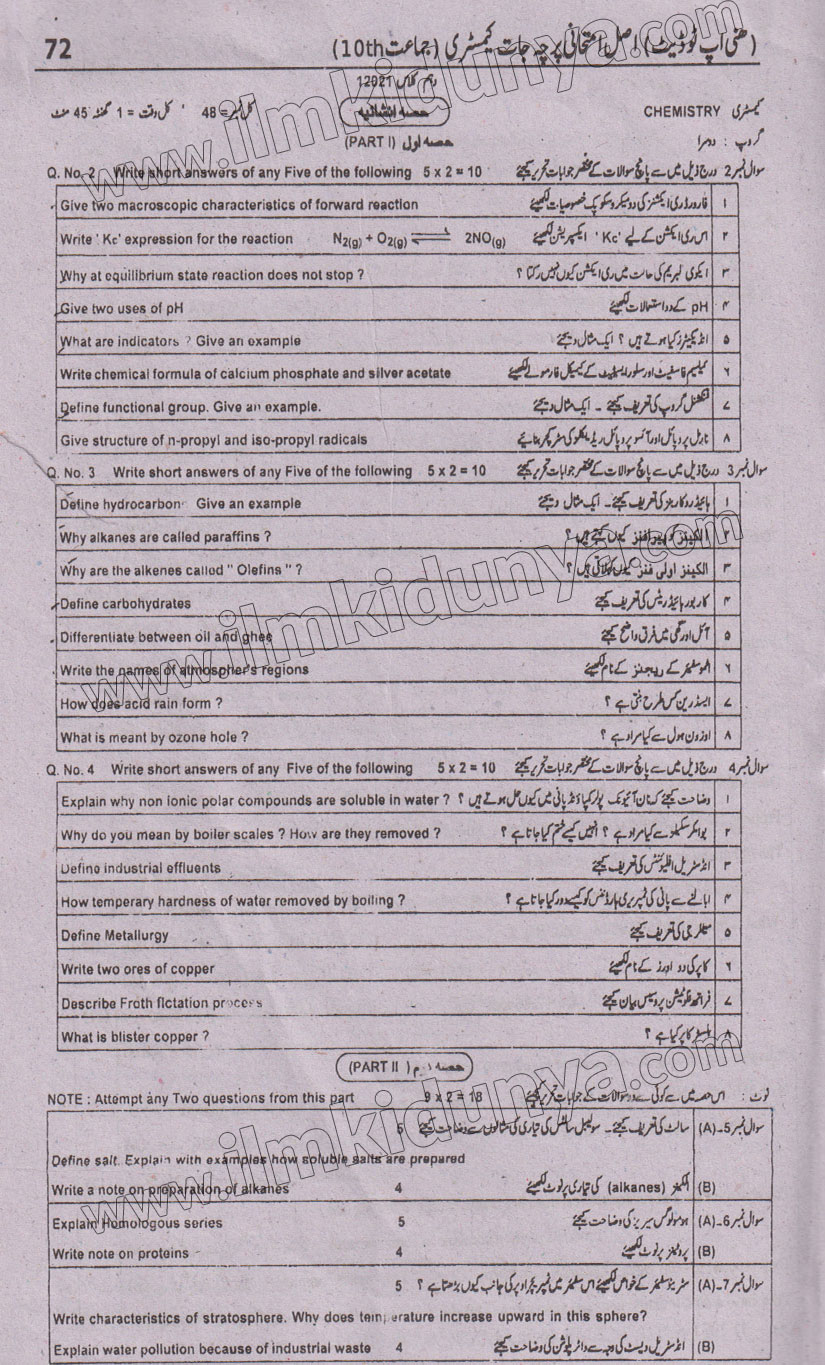 72 (نئی اپ ٹو ڈیٹ) اصل امتحانی پرچہ جات کیمسٹری (جماعت 10th)
دہم کلاس 12021
کیمسٹری CHEMISTRY حصہ انشائیہ کل نمبر = 48 کل وقت = 1 گھنٹہ 45 منٹ
گروپ : دوسرا حصہ اول (PART I)
Q. No. 2 Write short answers of any Five of the following 5 x 2 = 10 سوال نمبر 2 درج ذیل میں سے پانچ سوالات کے مختصر جوابات تحریر کیجئے
Give two macroscopic characteristics of forward reaction فارورڈ ری ایکشنز کی دو میکروسکوپک خصوصیات لکھیئے ۱
Write ' Kc' expression for the reaction N2(g) + O2(g) ⇌ 2NO(g) اس ری ایکشن کے لیے 'Kc' ایکسپریشن لکھیئے ۲
Why at equilibrium state reaction does not stop ? ایکوی لبریم کی حالت میں ری ایکشن کیوں نہیں رکتا ؟ ۳
Give two uses of pH pH کے دو استعمالات لکھیئے ۴
What are indicators ? Give an example انڈیکیٹرز کیا ہوتے ہیں ؟ ایک مثال دیجئے ۵
Write chemical formula of calcium phosphate and silver acetate کیلسیم فاسفیٹ اور سلور ایسیٹیٹ کے کیمیکل فارمولے لکھیئے ۶
Define functional group. Give an example. فنکشنل گروپ کی تعریف کیجئے ۔ ایک مثال دیجئے ۷
Give structure of n-propyl and iso-propyl radicals نارمل پروپائل اور آئسو پروپائل ریڈیکلز کی سٹرکچر بنائیے ۸
Q. No. 3 Write short answers of any Five of the following 5 x 2 = 10 سوال نمبر 3 درج ذیل میں سے پانچ سوالات کے مختصر جوابات تحریر کیجئے
Define hydrocarbon Give an example ہائیڈروکاربنز کی تعریف کیجئے ۔ ایک مثال دیجئے ۱
Why alkanes are called paraffins ? الکینز کو پیرافنز کیوں کہتے ہیں ؟ ۲
Why are the alkenes called " Olefins " ? الکینز اولی فنز کیوں کہلاتی ہیں ؟ ۳
Define carbohydrates کاربوہائیڈریٹس کی تعریف کیجئے ۴
Differentiate between oil and ghee آئل اور گھی میں فرق واضح کیجئے ۵
Write the names of atmospher's regions اٹموسفیئر کے ریجنز کے نام لکھیئے ۶
How does acid rain form ? ایسڈ رین کس طرح بنتی ہے ؟ ۷
What is meant by ozone hole ? اوزون ہول سے کیا مراد ہے ؟ ۸
Q. No. 4 Write short answers of any Five of the following 5 x 2 = 10 سوال نمبر 4 درج ذیل میں سے پانچ سوالات کے مختصر جوابات تحریر کیجئے
Explain why non ionic polar compounds are soluble in water ? وضاحت کیجئے کہ نان آئیونک پولر کمپاؤنڈ پانی میں کیوں حل ہوتے ہیں ؟ ۱
Why do you mean by boiler scales ? How are they removed ? بوائلر سکیلز سے کیا مراد ہے ؟ انہیں کیسے ختم کیا جاتا ہے ؟ ۲
Define industrial effluents انڈسٹریل افلیوئنٹس کی تعریف کیجئے ۳
How temperary hardness of water removed by boiling ? ابالنے سے پانی کی ٹمپریری ہارڈنس کو کیسے دور کیا جاتا ہے ؟ ۴
Define Metallurgy میٹلرجی کی تعریف کیجئے ۵
Write two ores of copper کاپر کی دو اورز کے نام لکھیئے ۶
Describe Froth flctation process فراتھ فلوٹیشن پروسیس بیان کیجئے ۷
What is blister copper ? بلسٹر کاپر کیا ہے ؟ ۸
حصہ دوم (PART II)
NOTE : Attempt any Two questions from this part 9 x 2 = 18 نوٹ : اس حصہ میں سے کوئی سے دو سوالات کے جوابات تحریر کیجئے
سوال نمبر 5-(A) سالٹ کی تعریف کیجئے ۔ سولیبل سالٹس کی تیاری کی مثالوں سے وضاحت کیجئے 5
Define salt. Explain with examples how soluble salts are prepared
Write a note on preparation of alkanes 4 الکینز (alkanes) کی تیاری پر نوٹ لکھیئے (B)
Explain Homologous series 5 ہومولوگس سیریز کی وضاحت کیجئے سوال نمبر 6-(A)
Write note on proteins 4 پروٹینز پر نوٹ لکھیئے (B)
سوال نمبر 7-(A) سٹریٹوسفیئر کے خواص لکھیئے اس سفیئر میں ٹمپریچر اوپر کی جانب کیوں بڑھتا ہے ؟ 5
Write characteristics of stratosphere. Why does temperature increase upward in this sphere?
Explain water pollution because of industrial waste 4 انڈسٹریل ویسٹ کی وجہ سے واٹر پولوشن کی وضاحت کیجئے (B)
www.ilmkidunya.com
www.ilmkidunya.com
www.ilmkidunya.com